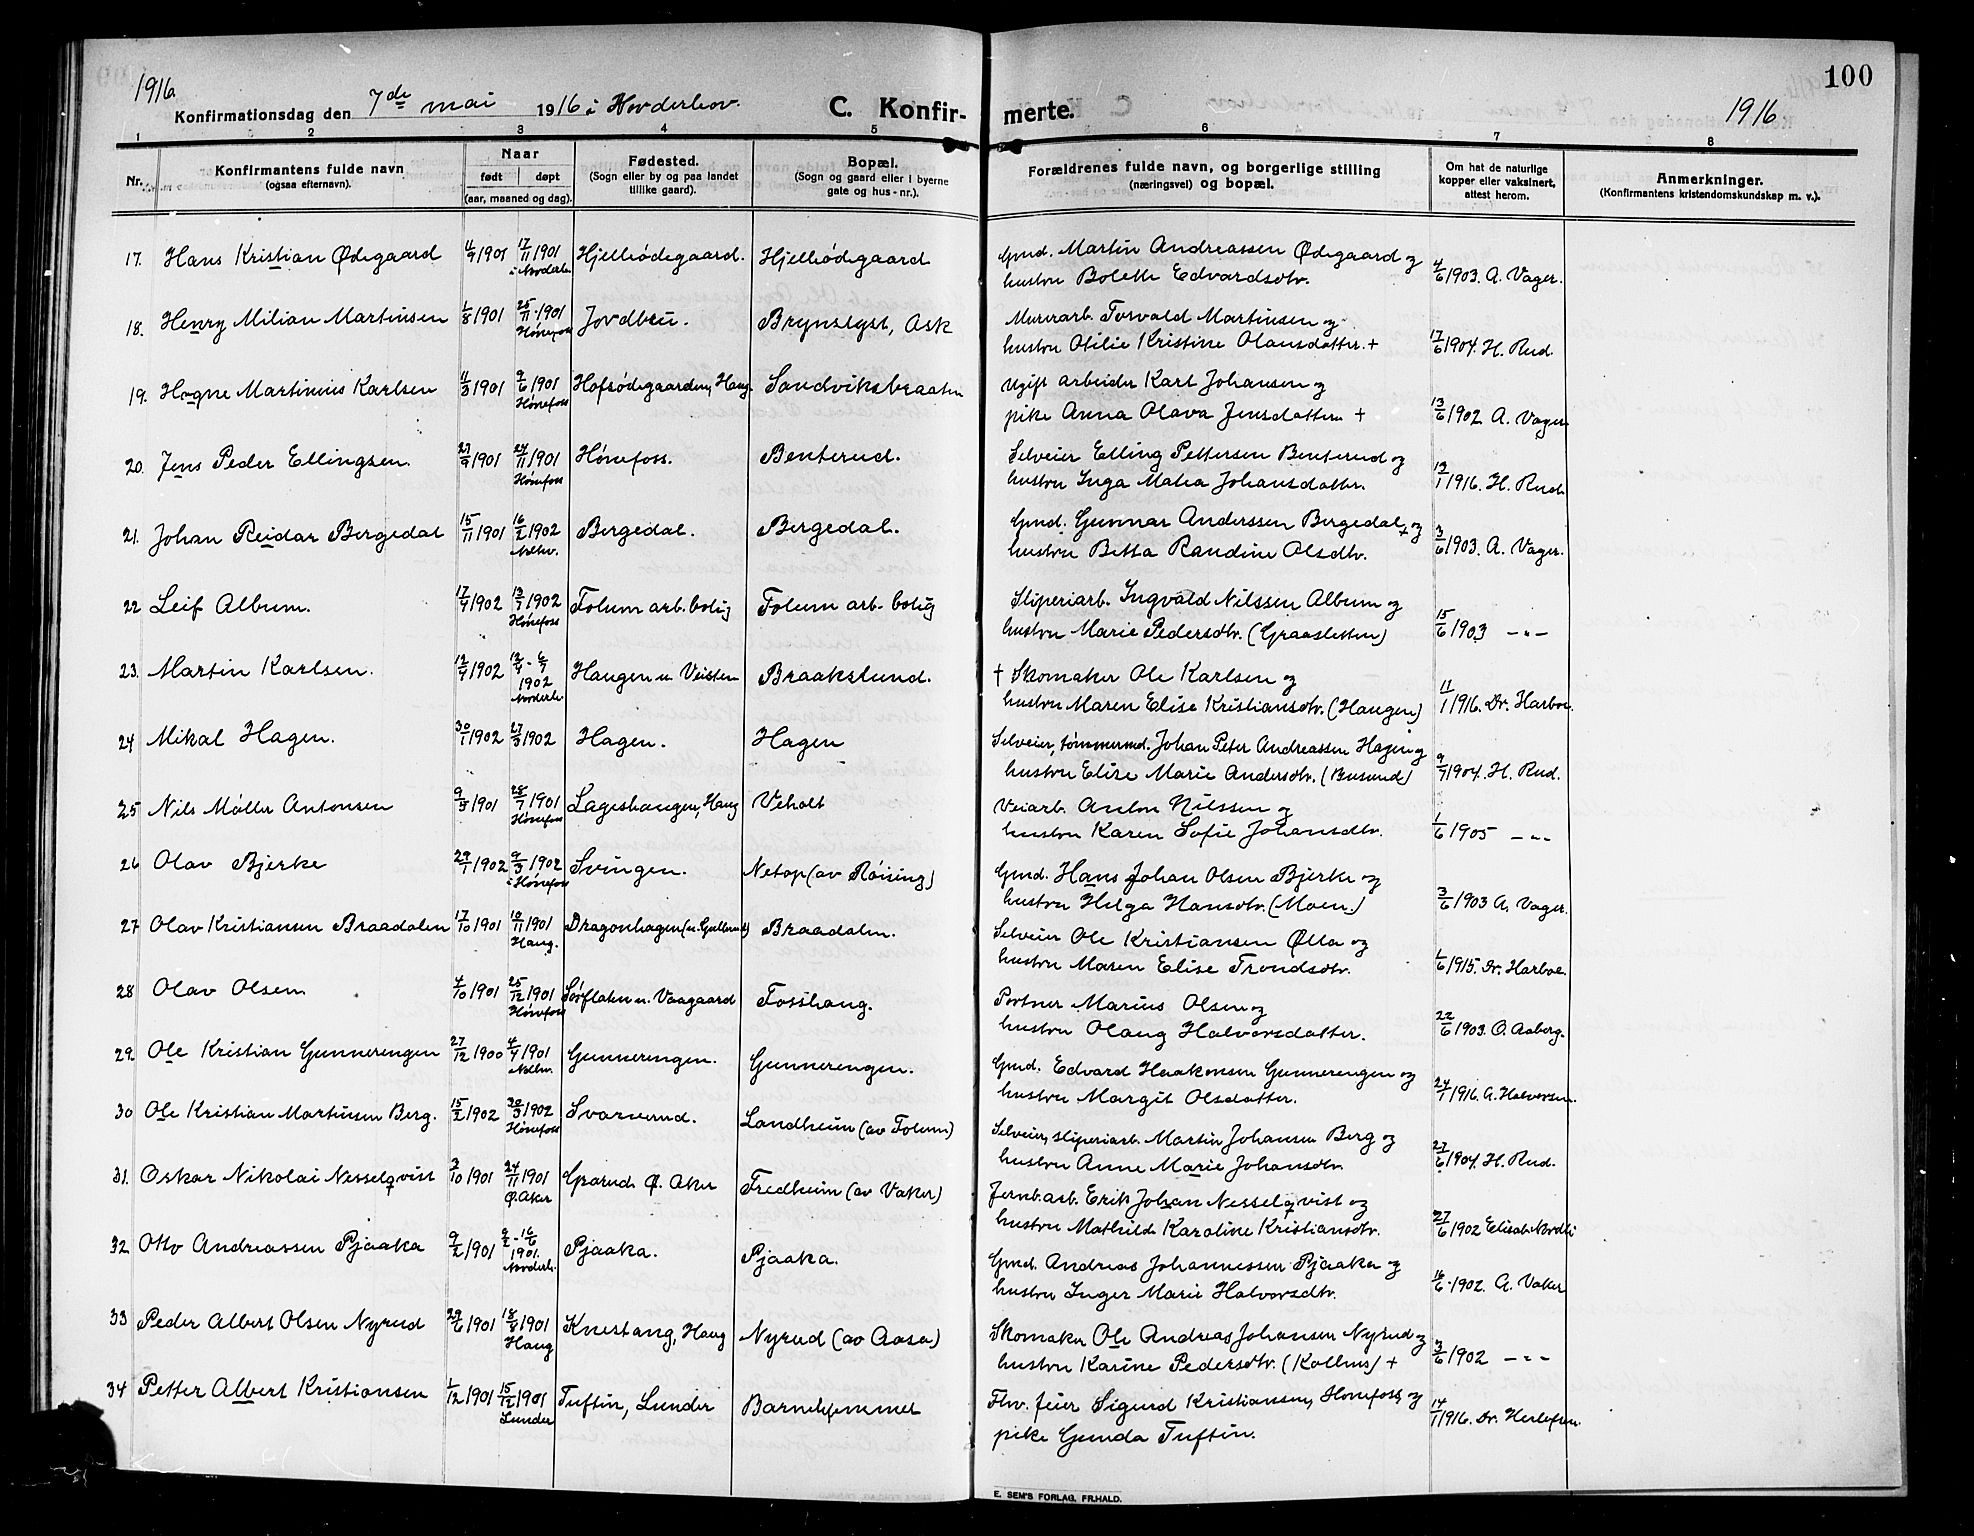 1916
Konfirmationsdag den 7de mai 1916 i Norderhov.
C. Konfir-
merte.
1916
100
1 2 3 4 5 6 7 8
Nr.
Konfirmantens fulde navn
(ogsaa efternavn).
Naar
født døpt
(aar, maaned og dag).
Fødested.
(Sogn eller by og paa landet
tillike gaard).
Bopæl.
(Sogn og gaard eller i byerne
gate og hus-nr.).
Forældrenes fulde navn, og borgerlige stilling
(næringsvei) og bopæl.
Om hat de naturlige
kopper eller vaksinert,
attest herom.
Anmerkninger.
(Konfirmantens kristendomskundskap m. v.).
17. Hans Kristian Ødegaard 11/9 1901 17/11 1901 Hjelleødegaard. Hjelleødegaard Gmd. Martin Andreassen Ødegaard og
i Norderh. hustru Bolette Edvardsdtr. 4/6 1903. A. Vager.
18. Henry Milian Martinsen 1/8 1901 25/11 1901 Jordbru. Brynslyst, Ask Murerarb. Torvald Martinsen og
Hønefoss hustru Otilie Kristine Olausdatter. + 17/6 1904. H. Rud.
19. Hogne Martinius Karlsen 11/3 1901 9/6 1901 Hofsødegaarden, Haug Sandviksbraaten Ugift arbeider Karl Johansen og
Hønefoss pike Anna Olava Jensdatter + 13/6 1902 A. Vager
20. Jens Peder Ellingsen. 27/9 1901 24/11 1901 Hønefoss. Benterud. Selveier Elling Pettersen Benterud og
Hønefoss hustru Inga Matea Johansdatter. 13/1 1916. H. Rud.
21. Johan Reidar Bergedal 15/11 1901 16/2 1902 Bergedal. Bergedal. Gmd. Gunnar Anderssen Bergedal + og
hustru Betta Randine Olsdtr. 3/6 1903. A. Vager.
22 Leif Album. 17/4 1902 13/7 1902 Tolum arb. bolig Tolum arb. bolig Sliperiarb. Ingvald Nilssen Album og
Hønefoss hustru Marie Pedersdtr. (Graasletten) 15/6 1903 -"-
23. Martin Karlsen. 12/4 1902 12/4 - 6/7 1902 Haugen u. Veisten Braakslund. † Skomaker Ole Karlsen og
Norderh. hustru Maren Elise Kristiansdtr. (Haugen) 11/1 1916. Dr. Harboe.
24 Mikal Hagen. 30/1 1902 27/3 1902 Hagen. Hagen Selveier, tømmermd. Johan Peter Andreassen Hagen og
hustru Elise Marie Andersdtr. (Busund) 9/7 1904. H. Rud.
25 Nils Møller Antonsen 9/5 1901 28/7 1901 Lageshaugen, Haug Veholt Veiarb. Anton Nilssen og
Hønefoss hustru Karen Sofie Johansdtr. 1/6 1905 -"-
26 Olav Bjerke 29/1 1902 9/3 1902 Svingen. Netop (av Røising) Gmd. Hans Johan Olsen Bjerke og
i Hønefoss hustru Helga Hansdtr. (Moen) 3/6 1903 A. Vager.
27 Olav Kristiansen Braadalen 17/10 1901 10/11 1901 Dragonhagen Braadalen. Selveier Ole Kristiansen Ølla og
Haug. hustru Maren Elise Trondsdtr. 1/6 1915. Dr. Harboe.
28 Olav Olsen 4/10 1901 25/12 1901 Sørflaten u. Vaagaard Fosshaug. Portner Marius Olsen og
Hønefoss hustru Olaug Halvorsdatter. 22/6 1903. O. Aaberg.
29. Ole Kristian Gunnerengen 27/12 1900 4/4 1901 Gunnerengen. Gunnerengen. Gmd. Edvard Haakonsen Gunnerengen og
hustru Margit Olsdatter. 24/1 1916. A. Halvorsen.
30 Ole Kristian Martinsen Berg. 15/2 1902 30/3 1902 Svarverud. Landheim (av Tolum) Selveier, sliperiarb. Martin Johansen Berg og
Hønefoss hustru Anne Marie Johansdtr. 27/6 1904. H. Rud.
31. Oskar Nikolai Nesselqvist 3/10 1901 24/11 1901 Grorud Ø. Aker Fredheim (av Vaker) Jernb.arb. Erik Johan Nesselqvist og
Ø. Aker hustru Mathild Karoline Kristiansdtr. 27/6 1902 Elisab. Nordli
32 Otto Andreassen Pjaaka 9/2 1901 9/2 - 16/6 1901. Pjaaka. Pjaaka. Gmd. Andreas Johannessen Pjaaka og
Norderh. hustru Inger Marie Halvorsdtr. 16/6 1902. A. Vaker
33 Peder Albert Olsen Nyrud 29/6 1901 18/8 1901 Knestang, Haug Nyrud (av Aasa) Skomaker Ole Andreas Johansen Nyrud og
Haug hustru Karine Pedersdtr. (Kollus) + 3/6 1902 -"-
34 Petter Albert Kristiansen 1/12 1901 15/12 1901 Tuftin, Lunder Barnehjemmet Fhv. feier Sigurd Kristiansen, Hønefoss, og
Lunder pike Gunda Tuftin. 14/1 1916. Dr. Herlofsen.
E. SEM'S FORLAG, FR.HALD.